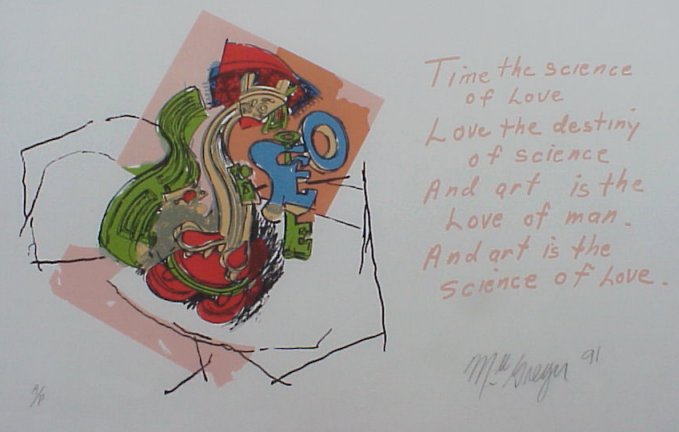 Time the science
of Love
Love the destiny
of science
And art is the
Love of man.
And art is the
science of Love.
MacGregor 91